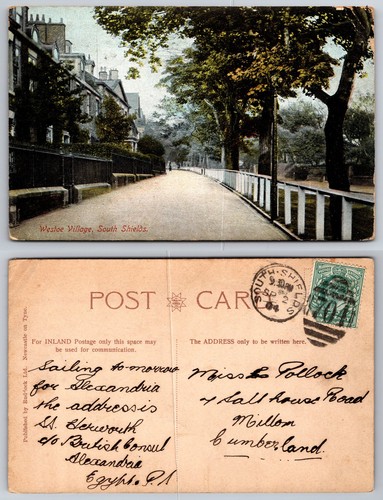 Westoe Village, South Shields.
POST CARD
For INLAND Postage only this space may
be used for communication.
The ADDRESS only to be written here.
Published by Ruddock Ltd. Newcastle on Tyne.
SOUTH-SHIELDS
SP 2
04
704
Sailing to-morrow
for Alexandria
the address is
St. Kerworth
c/o British Consul
Alexandria
Egypt. P.S
Miss Pollock
4 Salthouse Road
Millom
Cumberland.